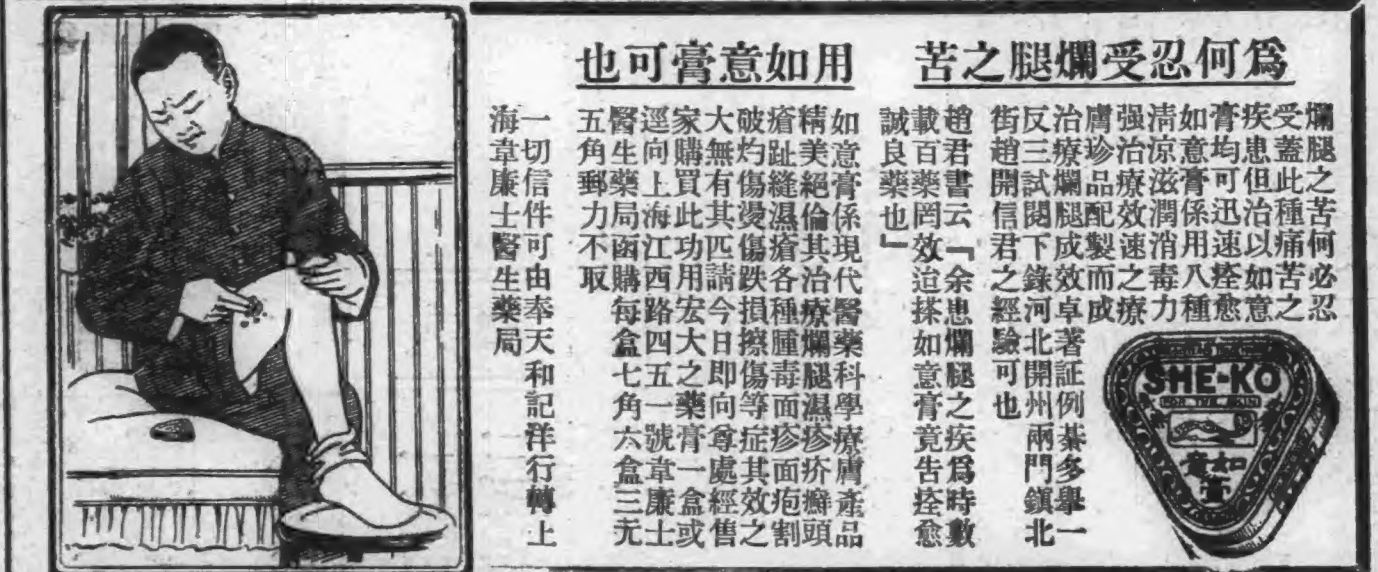 爲何忍受爛腿之苦
用如意膏可也
爛腿之苦何必忍
受蓋此種痛苦之
疾患但治以如意
膏均可迅速痊愈
如意膏係用八種
淸涼滋潤消毒力
强治療效速之療
膚珍品配製而成
治療爛腿成效卓著証例綦多舉一
反三試閱下錄河北開州兩門鎭北
街趙開信君之經驗可也
趙君書云『余患爛腿之疾爲時數
載百藥罔效迨搽如意膏竟告痊愈
誠良藥也』
如意膏係現代醫藥科學療膚產品
精美絕倫其治療爛腿濕疹疥癬頭
瘡趾縫濕瘡各種腫毒面疹面疱割
破灼傷漫傷跌損擦傷等症其效之
大無有其匹請今日即向尊處經售
家購買此功用宏大之藥膏一盒或
逕向上海江西路四五一號韋廉士
醫生藥局函購每盒七角六盒三元
五角郵力不取
一切信件可由奉天和記洋行轉上
海韋廉士醫生藥局
SHE-KO
FOR THE SKIN
如意膏